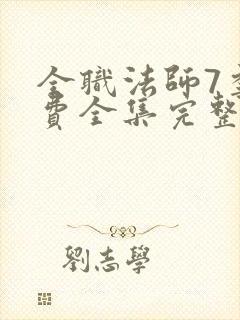 全職法師7季
費全集完整
劉志學